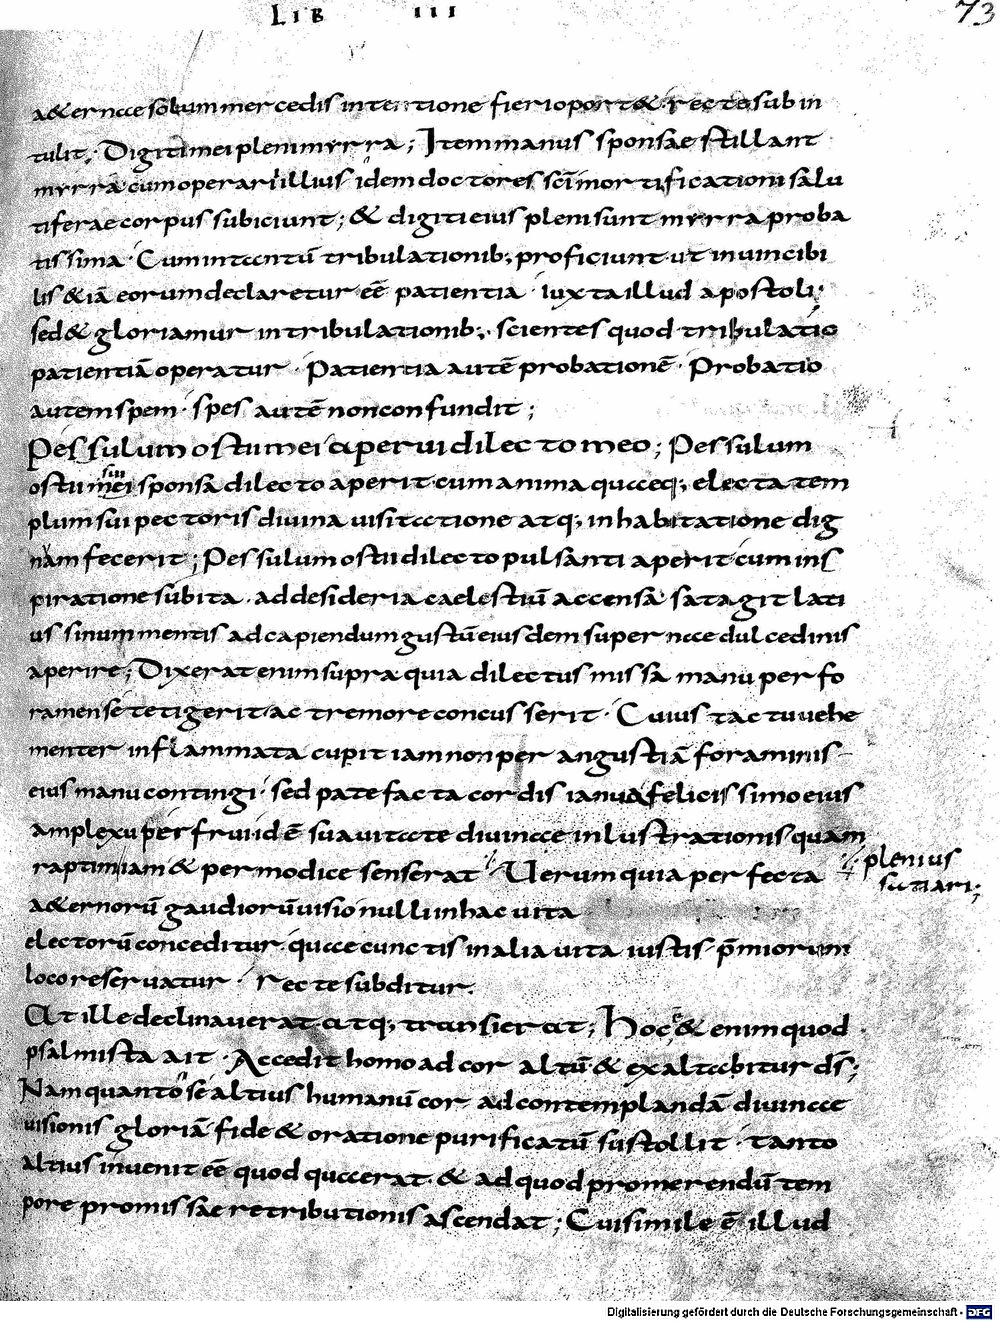 LIB III 73
a&ernae solum mercedis intentione fieri oport& recte subin
tulit; Digiti mei pleni myrra; Item manus sponsae stillant
myrra cum operarii illius idem doctores sci mortificationi salu
tiferae corpus subiciunt; & digiti eius pleni sunt myrra proba
tissima. Cum intantū tribulationib; proficiunt ut inuincibi
lis & iā eorum declaretur eē patientia. iuxta illud apostoli;
sed & gloriamur in tribulationib;. scientes quod tribulatio
patientiā operatur. Patientia autē probationē. Probatio
autem spem. spes autē non confundit;
Pessulum ostii mei aperui dilecto meo; Pessulum
ostii mei sui sponsa dilecto aperit. cum anima quaeq; electa tem
plum sui pectoris diuina uisitatione atq; inhabitatione dig
nam fecerit; Pessulum ostii dilecto pulsanti aperit. cum ins
piratione subita. ad desideria caelestiū accensa satagit lati
us sinum mentis ad capiendum gustū eiusdem supernae dulcedinis
aperire; Dixerat enim supra quia dilectus missa manu per fo
ramen se tetigerit. ac tremore concusserit. Cuius tactu uehe
menter inflammata cupit iam non per angustiā foraminis
eius manu contingi. sed patefacta cordis ianua felicissimo eius
amplexu perfrui id ē suauitate diuinae inlustrationis quam
raptim iam & permodice senserat Uerum quia perfecta
plenius
satiari;
a&ernorū gaudiorū uisio nulli in hac uita
electorū conceditur. quae cunctis in alia uita iustis p̄miorum
loco reseruatur. recte subditur.
At ille declinauerat atq; transierat; Hoc & enim quod
psalmista ait. Accedit homo ad cor altū & exaltabitur ds̄;
Nam quanto se altius humanū cor ad contemplandā diuinae
uisionis gloriā fide & oratione purificatū sustollit. tanto
altius inuenit eē quod quaerat. & ad quod promerendū tem
pore promissae retributionis ascendat; Cui simile ē illud
Digitalisierung gefördert durch die Deutsche Forschungsgemeinschaft - DFG